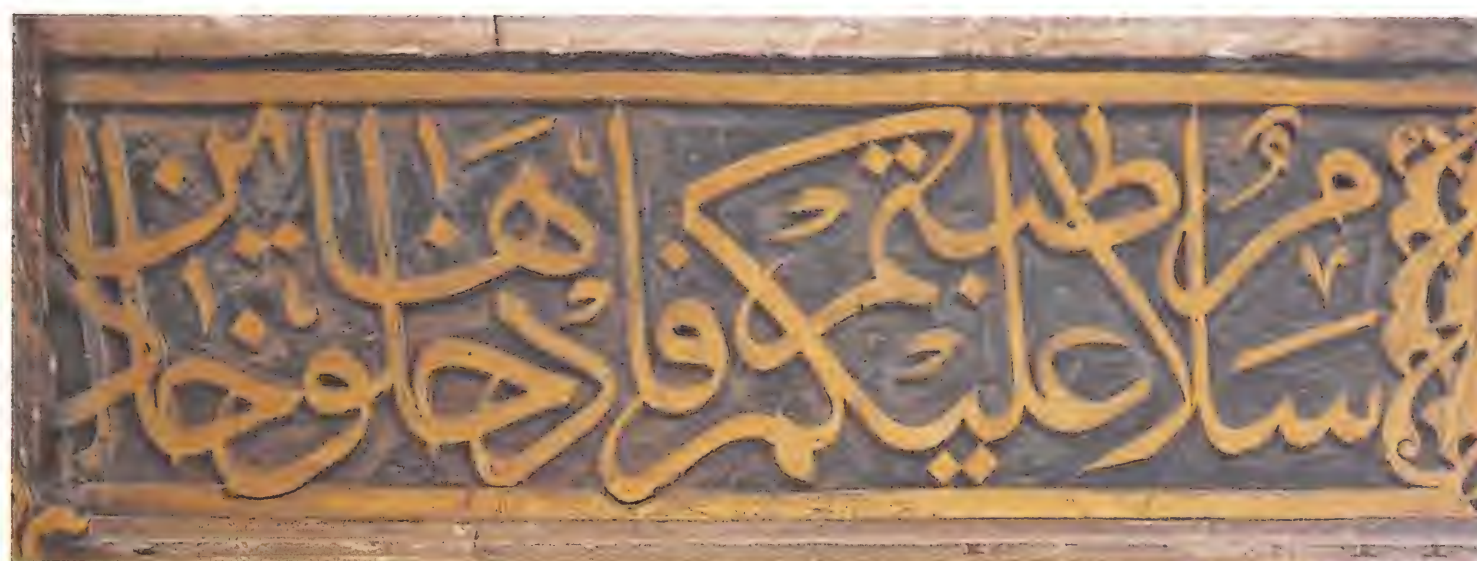 سلامٌ عليكم طبتم فادخلوها خالدين